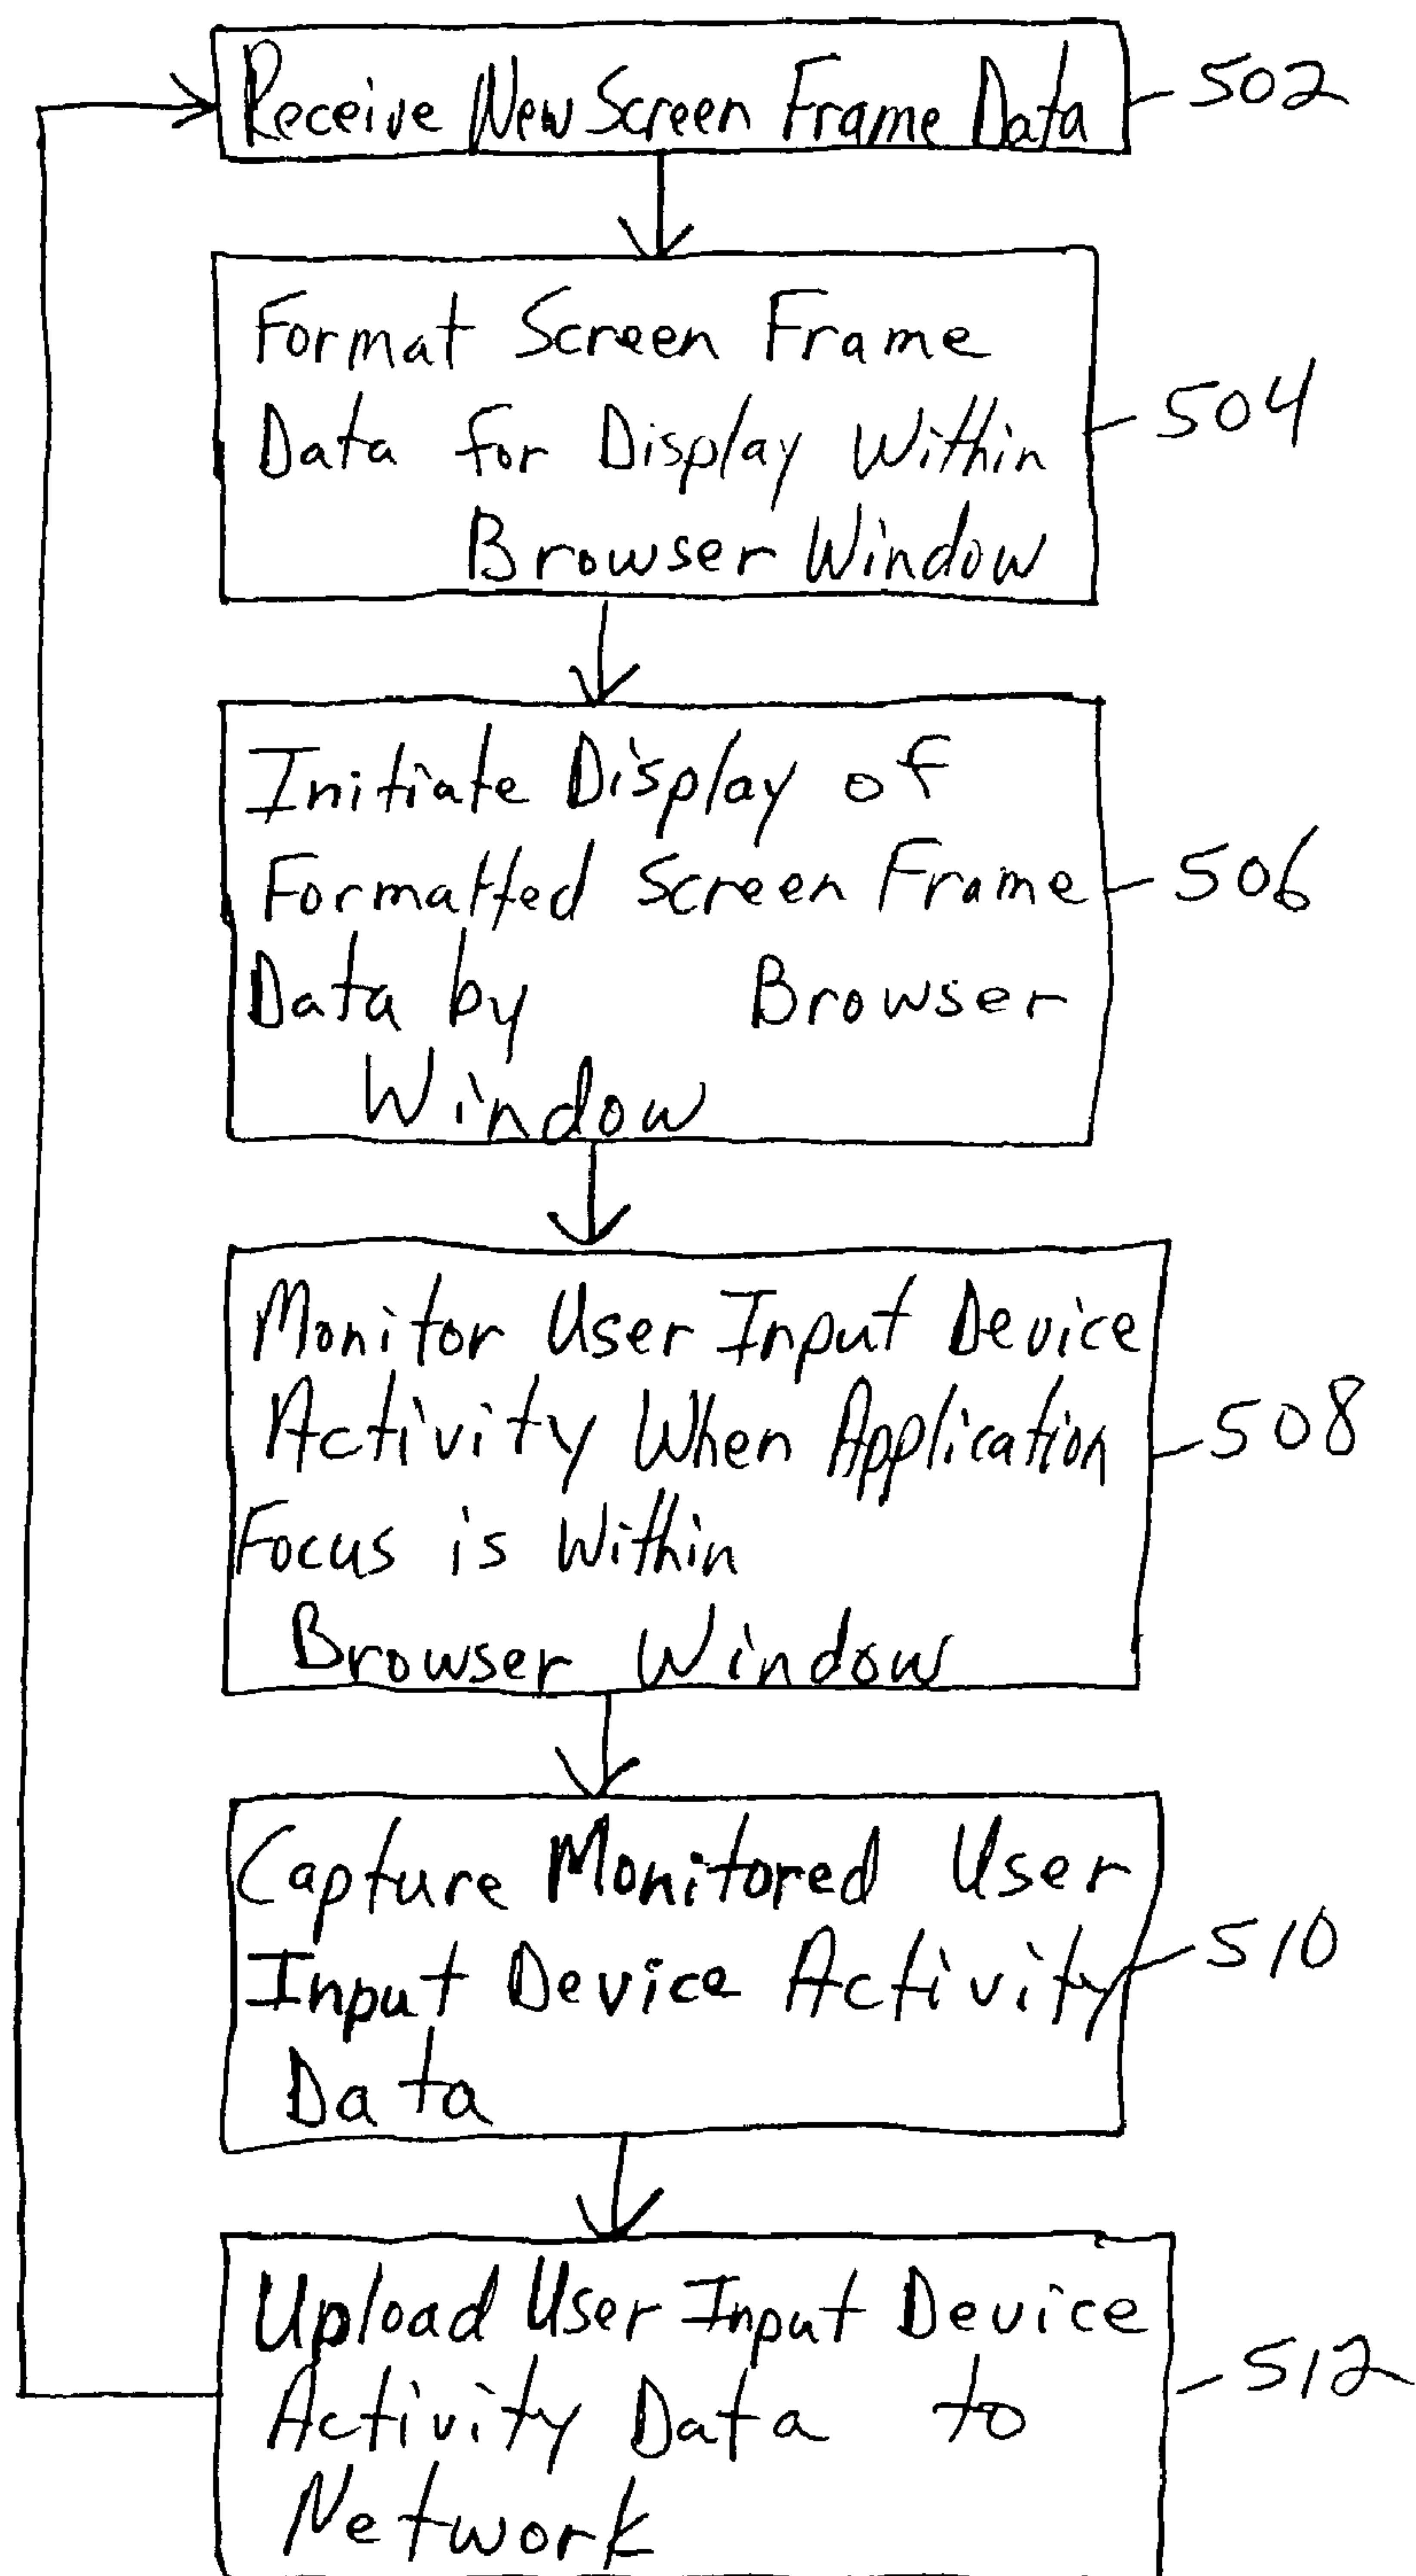 Receive New Screen Frame Data
502
Format Screen Frame
Data for Display Within
Browser Window
504
Initiate Display of
Formatted Screen Frame
Data by Browser
Window
506
Monitor User Input Device
Activity When Application
Focus is Within
Browser Window
508
Capture Monitored User
Input Device Activity
Data
510
Upload User Input Device
Activity Data to
Network
512